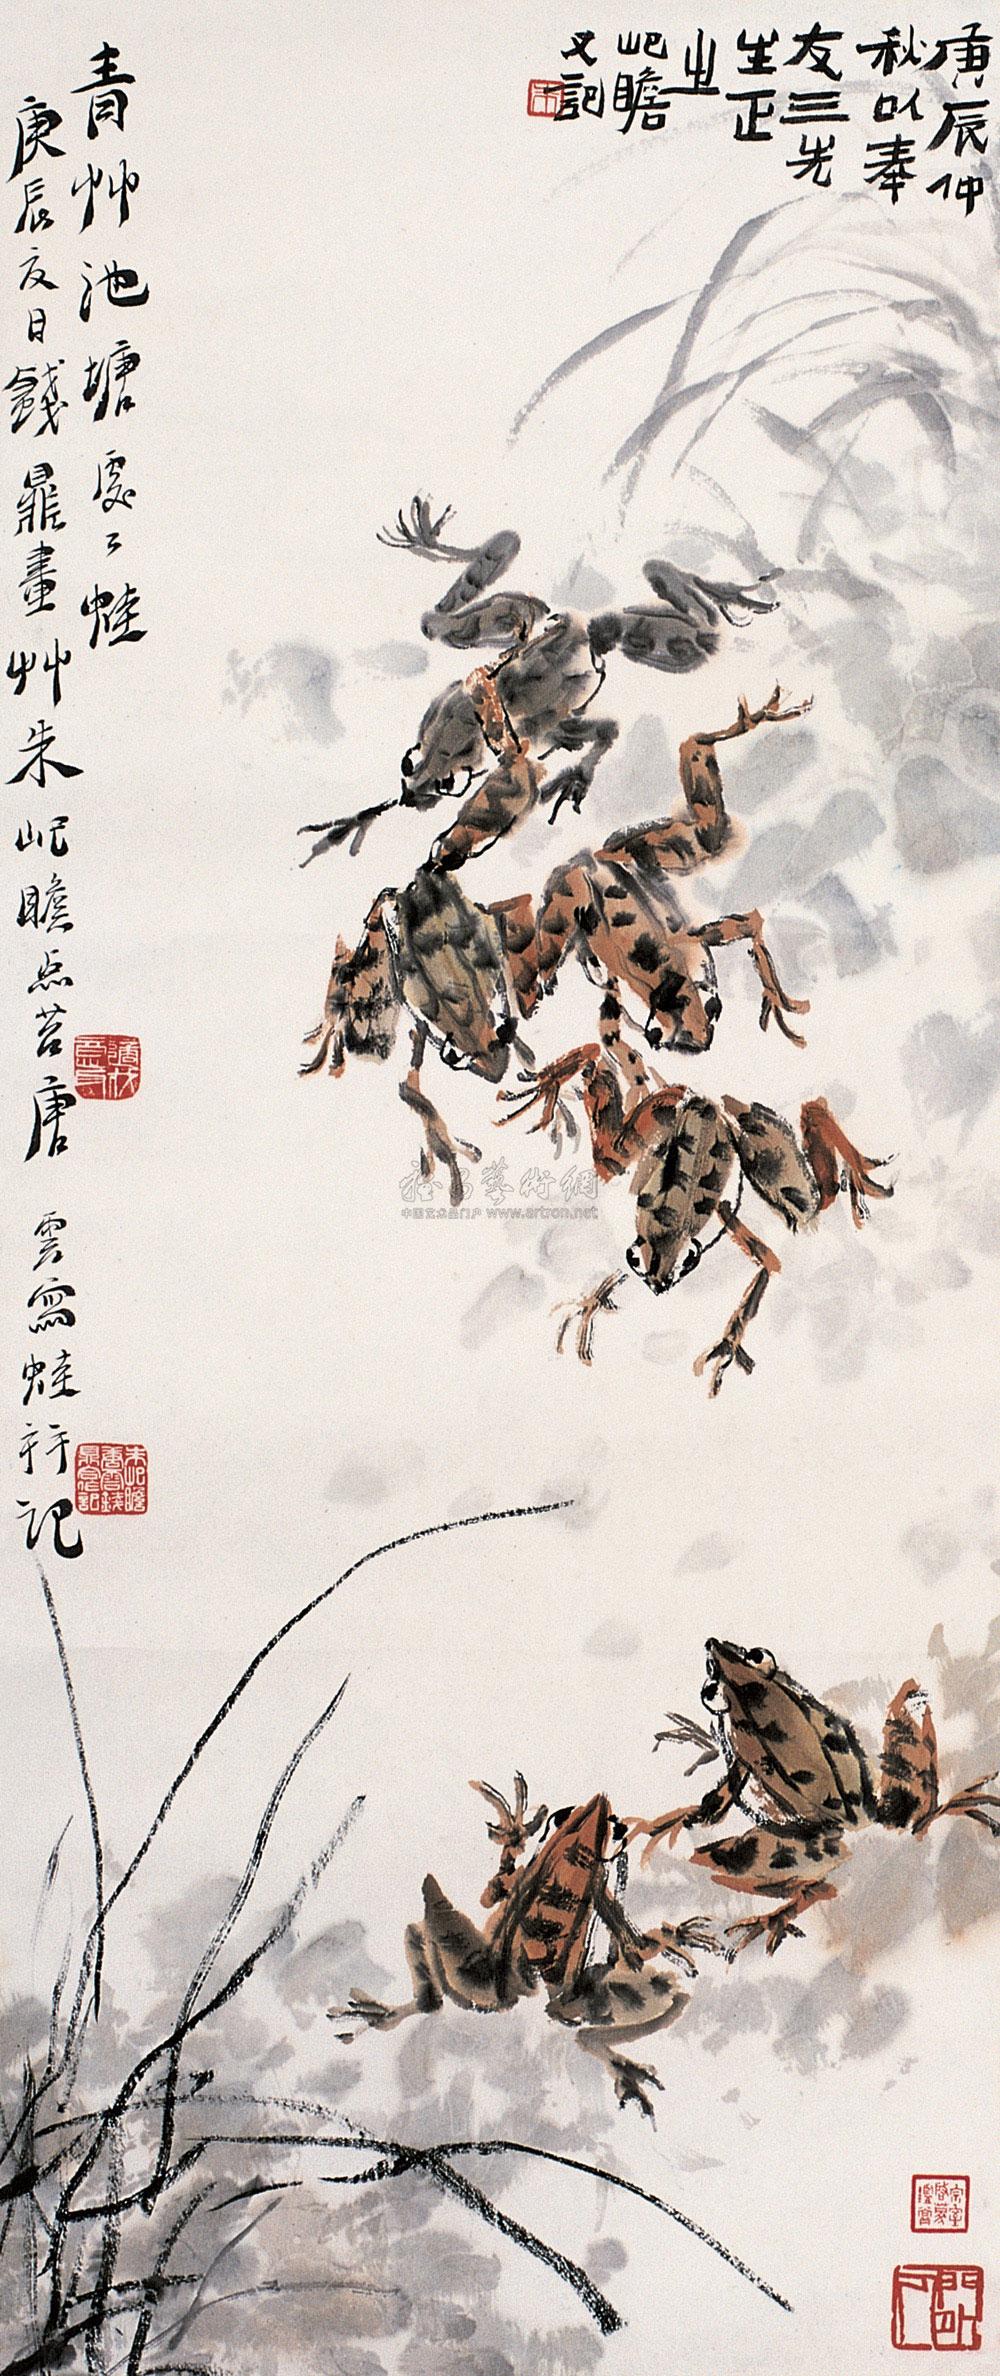 庚辰仲
秋以奉
友三先
生正
之
屺瞻
又記
青艸池塘處〻蛙
庚辰夏日錢鼎畫艸朱屺瞻点苔唐雲寫蛙并記
朱屺瞻
雅昌藝術網
中国艺术品门户 www.artron.net